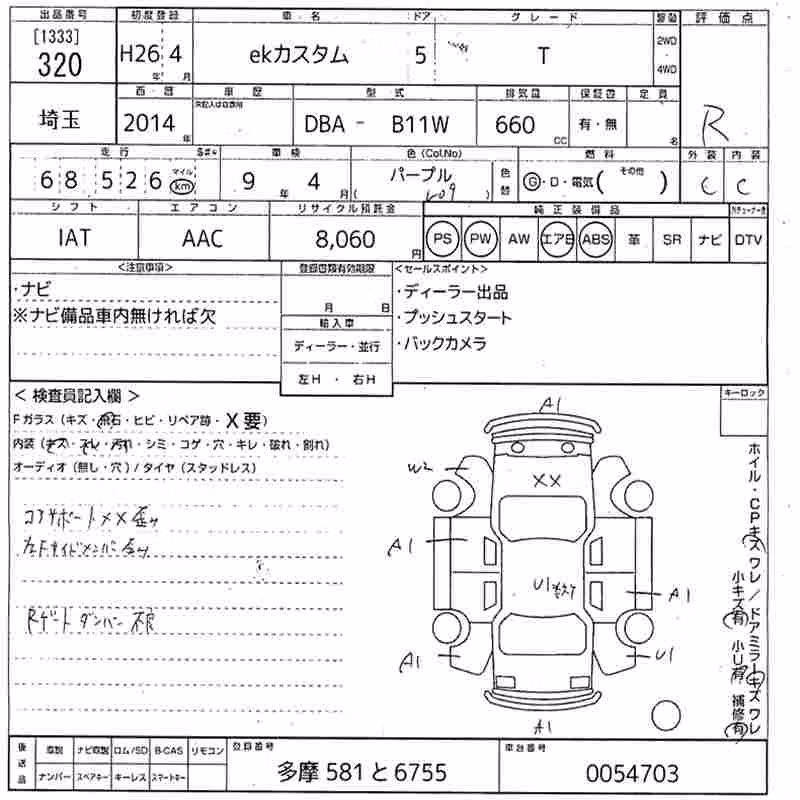 出品番号 初度登録 車名 ドア グレード 駆動 評価点
[1333] 320 H26年 4月 ekカスタム 5 T 2WD・4WD R
埼玉 西暦 車歴 型式 排気量 保証書 定員
2014年 DBA - B11W 660cc 有・無 名
走行 車検 色(Col.No) 燃料 外装 内装
68526 マイル km 9年 4月 パープル 色替 G・D・電気( その他 ) C C
シフト エアコン リサイクル預託金 純正装備品
IAT AAC 8,060円 PS PW AW エアB ABS 革 SR ナビ DTV
<注意事項> 登録書類有効期限 <セールスポイント>
・ナビ 月 日 ・ディーラー出品
※ナビ備品車内無ければ欠 輸入車 ・プッシュスタート
ディーラー・並行 ・バックカメラ
左H ・ 右H
< 検査員記入欄 > キーロック
Fガラス(キズ・飛石・ヒビ・リペア跡・X要)
内装(キズ・スレ・汚れ・シミ・コゲ・穴・キレ・破れ・割れ)
オーディオ(無し・穴)/タイヤ(スタッドレス)
コアサポートXX歪み
左Fサイドメンバー歪み
Rゲートダンパー不良
A1
W2 XX
A1 U1 A1
A1 U1
A1
ホイル・CPキズワレ/ドアミラーキズワレ
小キズ有 小U有 補修有
後送品 車説 ナビ取説 ロム/SD B-CAS リモコン 登録番号 車台番号
ナンバー スペアキー キーレス スマートキー 多摩 581 と 6755 0054703